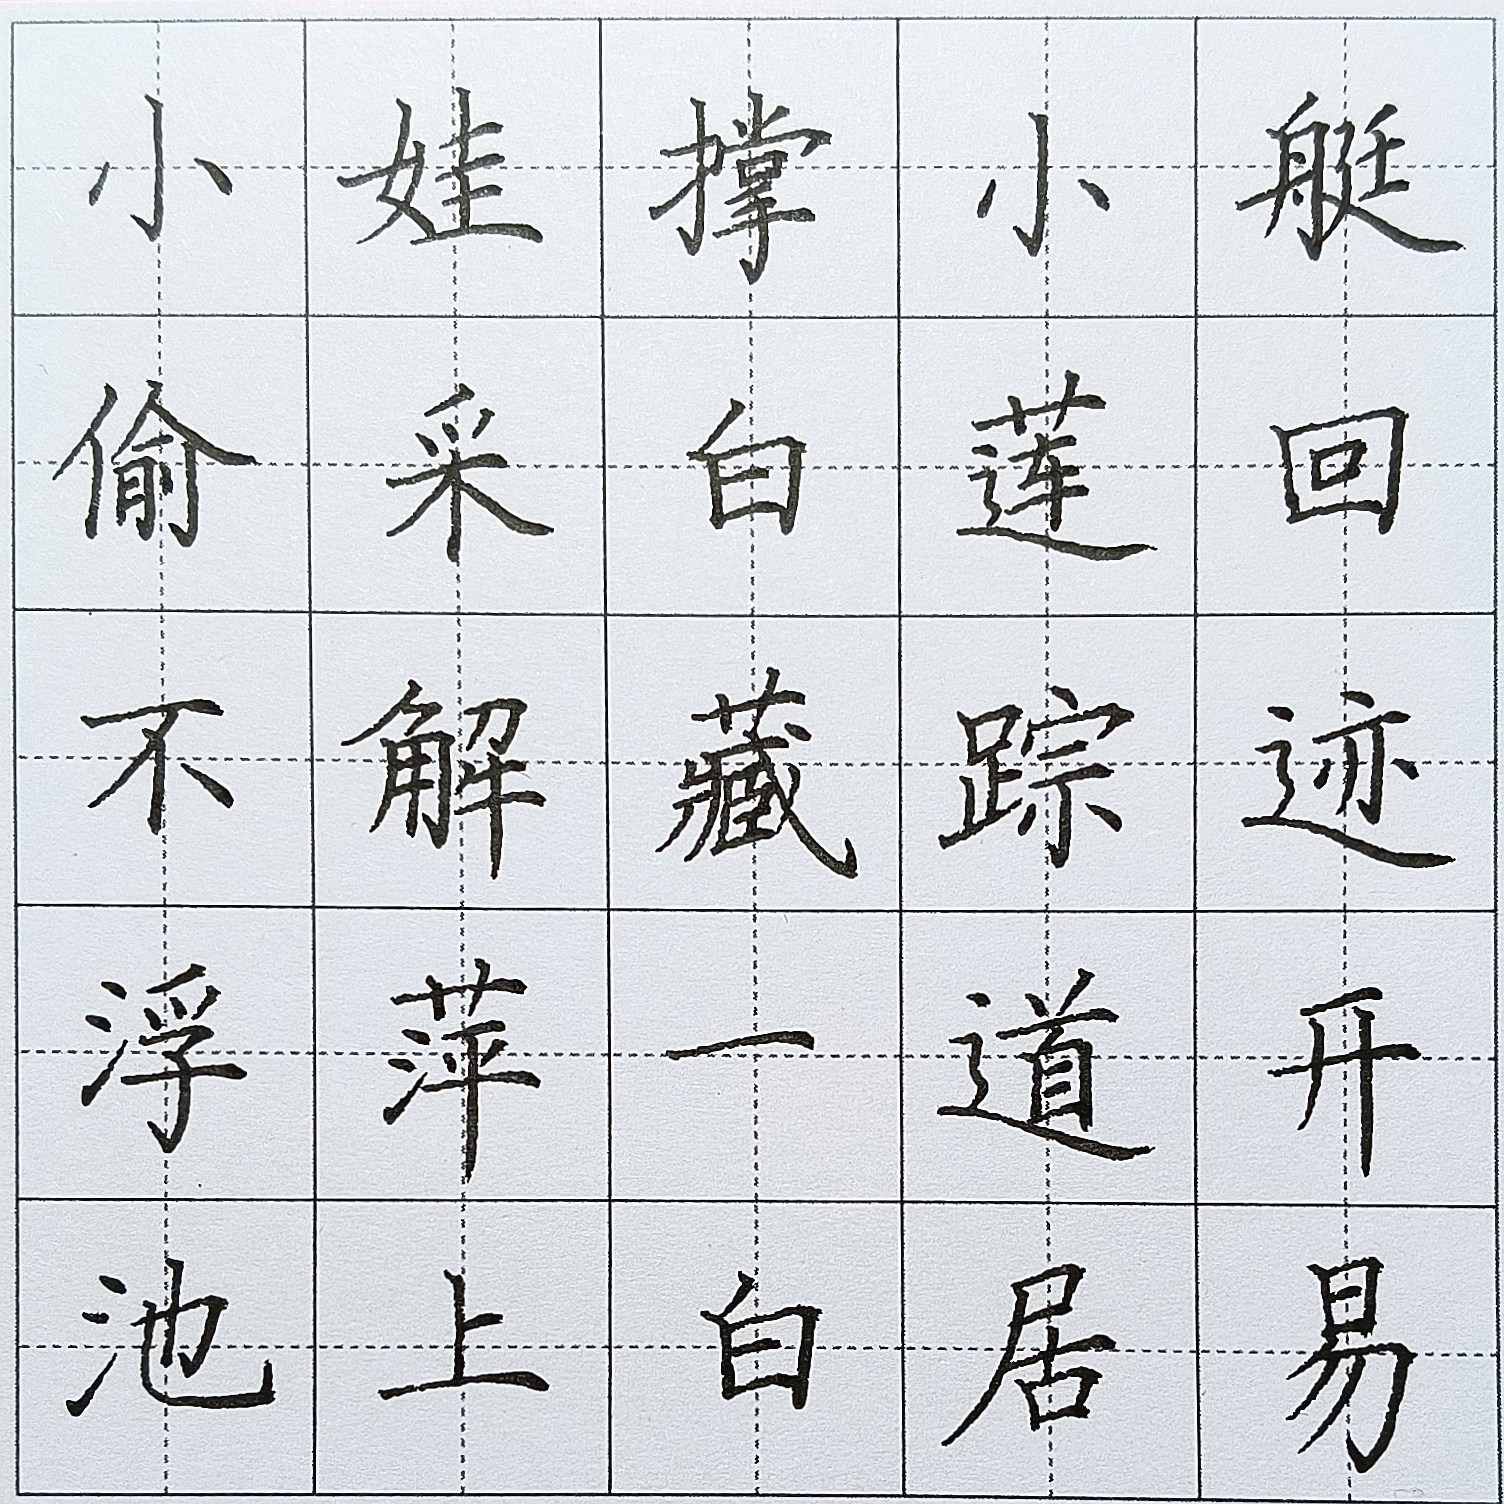 小娃撑小艇
偷采白莲回
不解藏踪迹
浮萍一道开
池上白居易